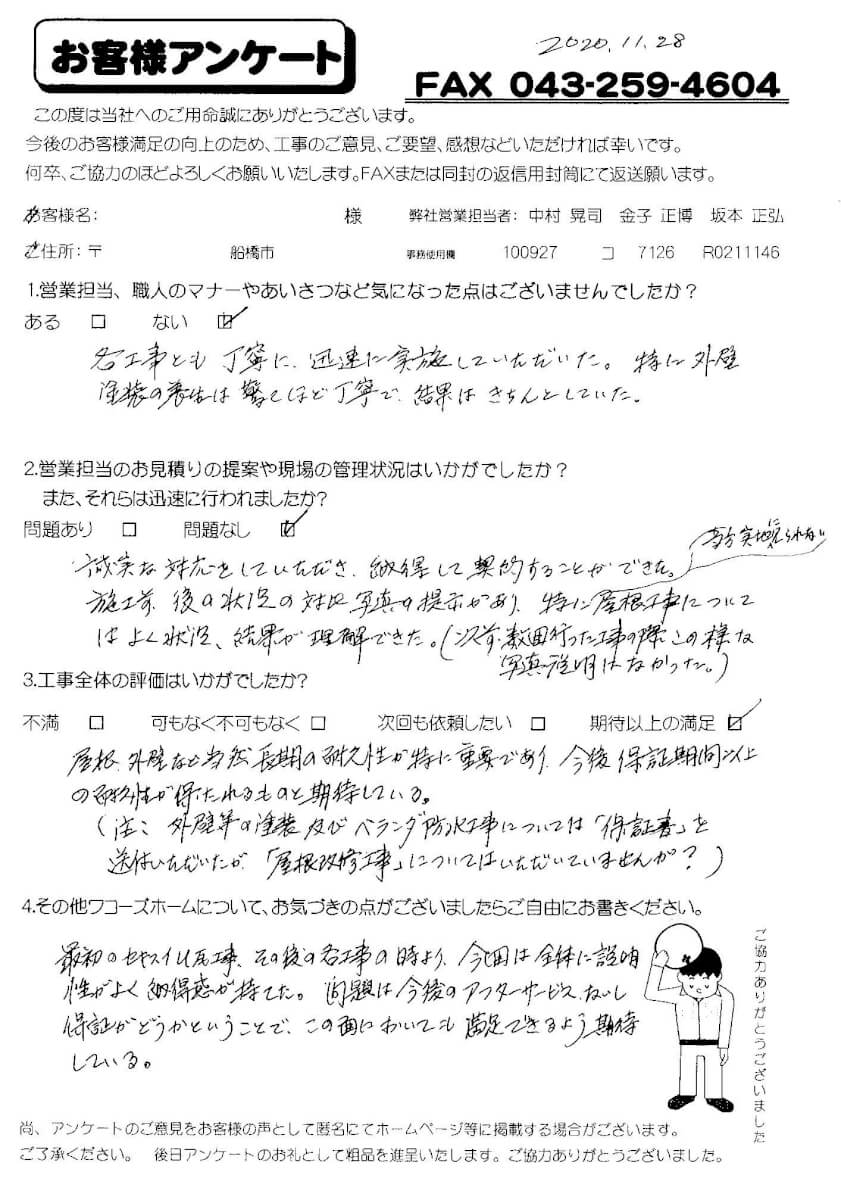 お客様アンケート
2020.11.28
FAX 043-259-4604
この度は当社へのご用命誠にありがとうございます。
今後のお客様満足の向上のため、工事のご意見、ご要望、感想などいただければ幸いです。
何卒、ご協力のほどよろしくお願いいたします。FAXまたは同封の返信用封筒にて返送願います。
お客様名: 様 弊社営業担当者: 中村 晃司 金子 正博 坂本 正弘
ご住所: 〒 船橋市 事務使用欄 100927 コ 7126 R0211146
1.営業担当、職人のマナーやあいさつなど気になった点はございませんでしたか?
ある □ ない ☑
各工事とも丁寧に、迅速に実施していただいた。特に外壁
塗装の養生は驚くほど丁寧で、結果はきちんとしていた。
2.営業担当のお見積りの提案や現場の管理状況はいかがでしたか?
また、それらは迅速に行われましたか?
問題あり □ 問題なし ☑
実地に見られない
誠実な対応をしていただき、納得して契約することができた。
施工前、後の状況の対比写真の提示があり、特に屋根工事について
はよく状況、結果が理解できた。(以前、数回行った工事の際この様な
写真説明はなかった。)
3.工事全体の評価はいかがでしたか?
不満 □ 可もなく不可もなく □ 次回も依頼したい □ 期待以上の満足 ☑
屋根、外壁など当然長期の耐久性が特に重要であり、今後保証期間以上
の耐久性が保たれるものと期待している。
(注: 外壁等の塗装及びベランダ防水工事については「保証書」を
送付いただいたが、「屋根改修工事」についてはいただいていませんが?)
4.その他ワコーズホームについて、お気づきの点がございましたらご自由にお書きください。
最初のセキスイU瓦工事、その後の各工事の時より、今回は全体に説明
性がよく納得感が持てた。問題は今後のアフターサービスないし
保証がどうかということで、この面においても満足できるよう期待
している。
ご協力ありがとうございました
尚、アンケートのご意見をお客様の声として匿名にてホームページ等に掲載する場合がございます。
ご了承ください。 後日アンケートのお礼として粗品を進呈いたします。ご協力ありがとうございました。